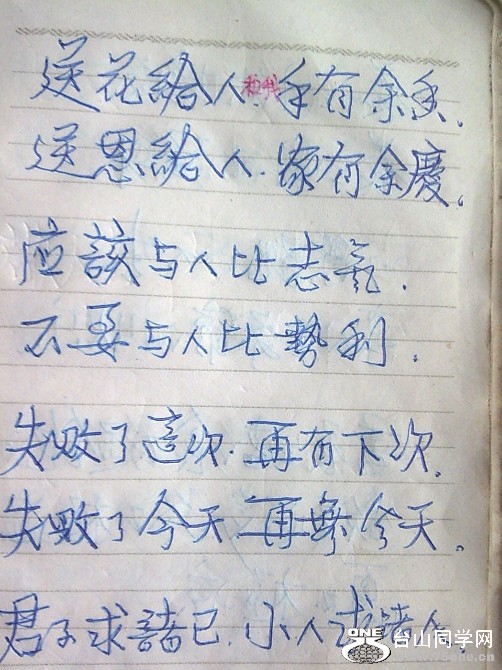 送花給人.手有余香.
送恩給人.家有余慶.
应該与人比志氣.
不要与人比勢利.
失败了這次.再有下次.
失败了今天.再無今天.
君子求諸己 小人求諸人.
ONE 台山同学网